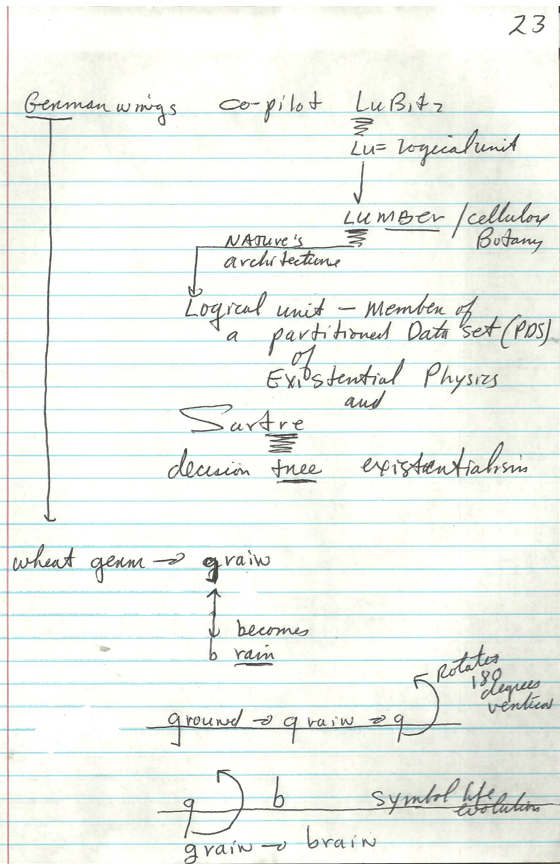 23
Germanwings co-pilot LuBitz
Lu= Logical unit
LUMBER / cellulose
Botany
NATURE's
architecture
Logical unit - Member of
a partitioned Data set (PDS)
of
Existential Physics
and
Sartre
decision tree existentialism
wheat germ → grain
becomes
b rain
Rotates
180
degrees
vertical
ground → grain → g
g b symbol life
evolution
grain → brain